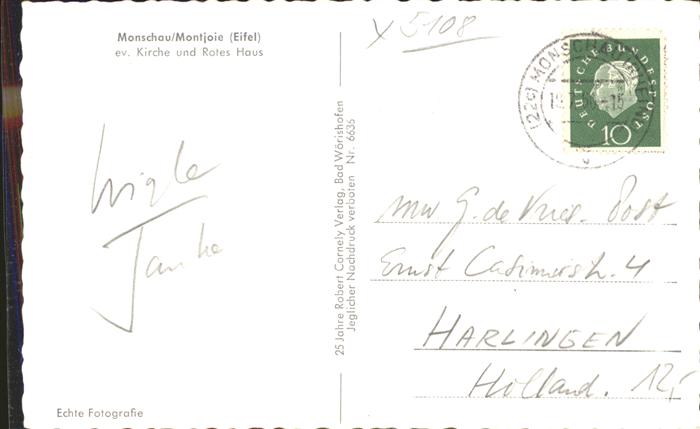 Monschau/Montjoie (Eifel)
ev. Kirche und Rotes Haus
x 5108
(22c) MONSCHAU
DEUTSCHE BUNDESPOST
10
25 Jahre Robert Cornely Verlag, Bad Wörishofen
Jeglicher Nachdruck verboten Nr. 6635
mw G. de Vries. Post
Ernst Casimirstr. 4
HARLINGEN
Holland. 12,-
Echte Fotografie